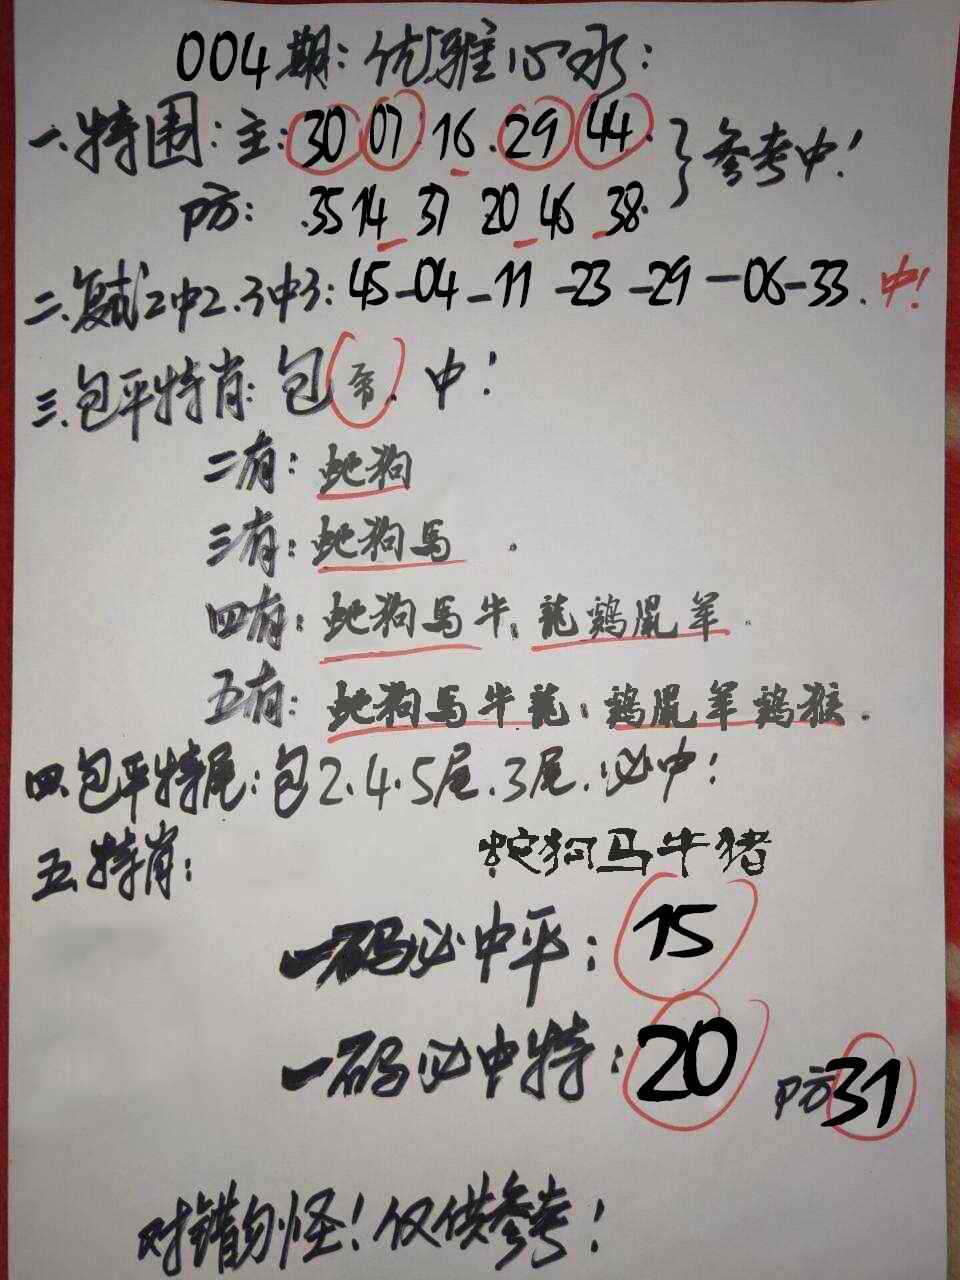 004期:优雅心水:
一.特围:主:30 07 16.29 44.
参考中!
防:.35 14 37 20 46 38.
二.复式2中2.3中3:45-04-11-23-29-06-33.中!
三.包平特肖:包.中!
二有:蛇狗
三有:蛇狗馬.
四有:蛇狗馬牛;龍鷄鼠羊.
五有:蛇狗馬牛龍:鷄鼠羊鷄猴.
四.包平特尾:包2.4.5尾.3尾.必中!
五.特肖:蛇狗马牛猪
一码必中平:15
一码必中特:20 防31
对错勿怪!仅供参考!